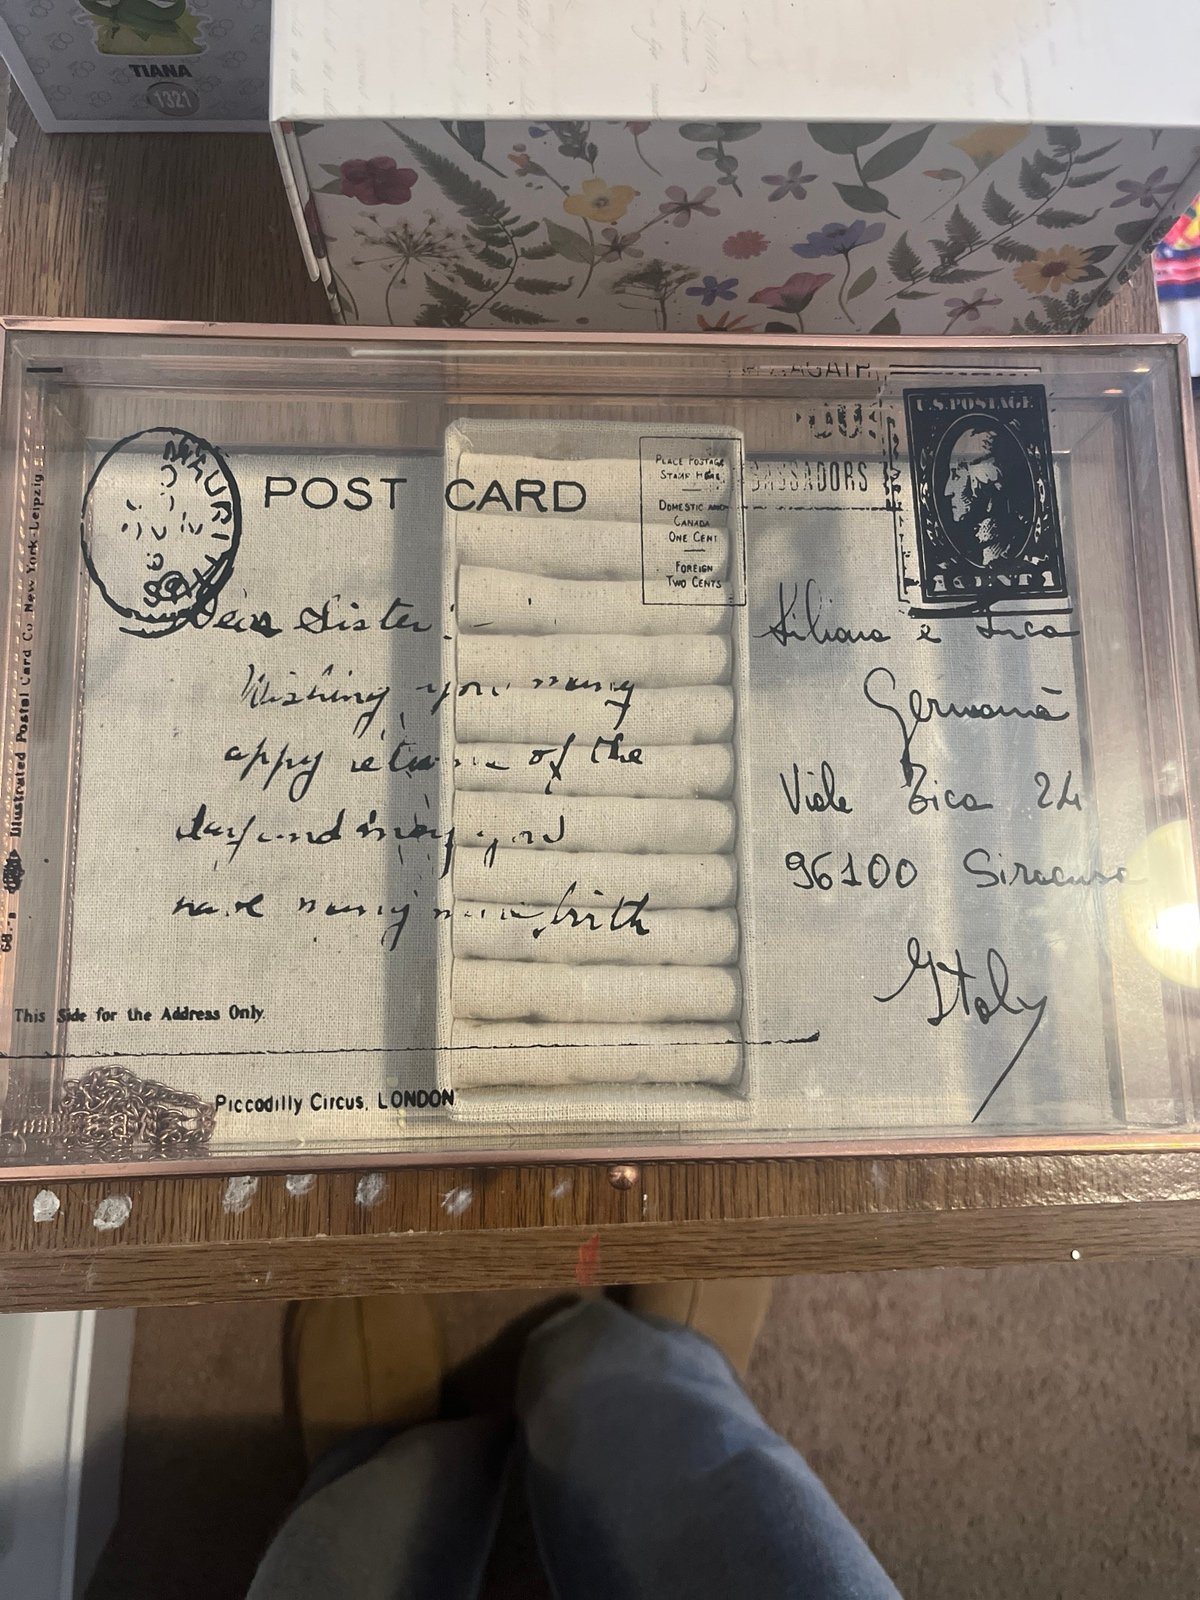 TIANA
1321
U.S. POSTAGE
1 CENT 1
MAURITIUS
POST CARD
PLACE POSTAGE
STAMP HERE
DOMESTIC AND
CANADA
ONE CENT
FOREIGN
TWO CENTS
BASSADORS
Illustrated Postal Card Co. New York-Leipzig
68.-
Dear Sister
Wishing you many
appy retu of the
day and may you
have many more birth
Liliana e Luca
Germanà
Viale Zica 24
96100 Siracusa
Italy
This Side for the Address Only.
Piccadilly Circus, LONDON